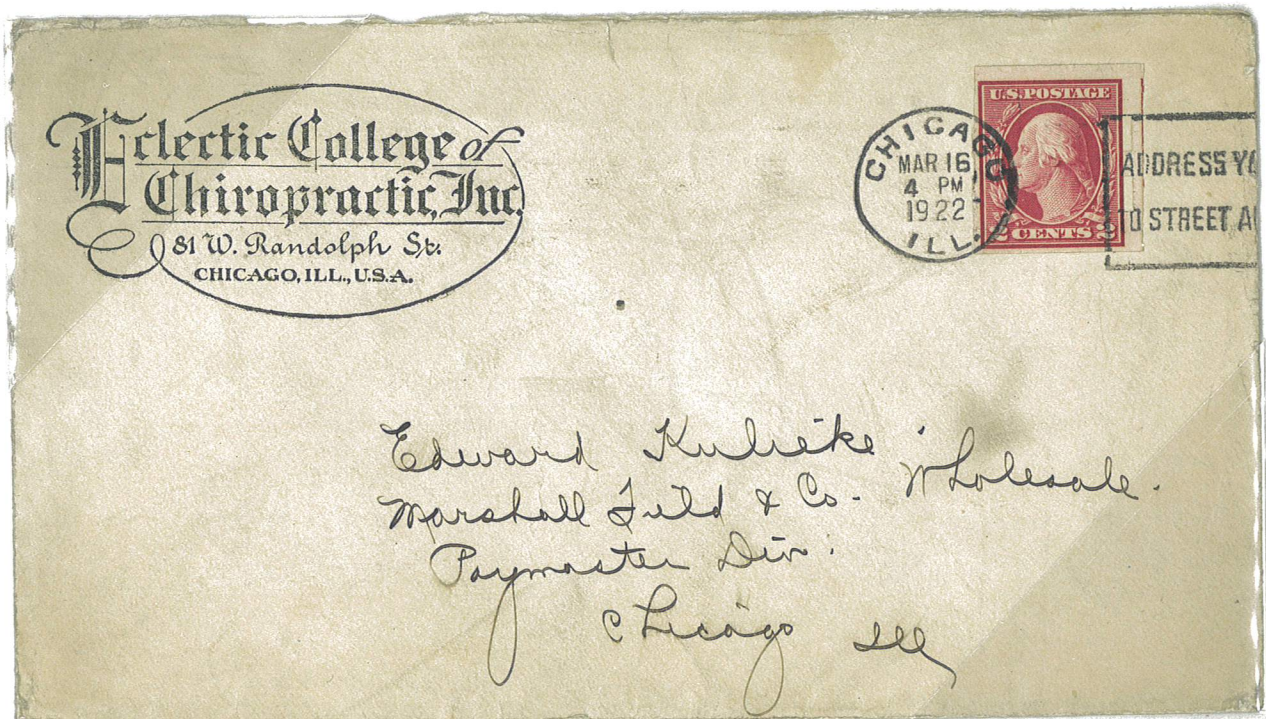 Eclectic College of
Chiropractic, Inc.
81 W. Randolph St.
CHICAGO, ILL., U.S.A.
CHICAGO
MAR 16
4 PM
1922
ILL.
U.S.POSTAGE
2 CENTS 2
ADDRESS YO
TO STREET A
Edward Kulieke
Marshall Field & Co. Wholesale.
Paymaster Div.
Chicago Ill